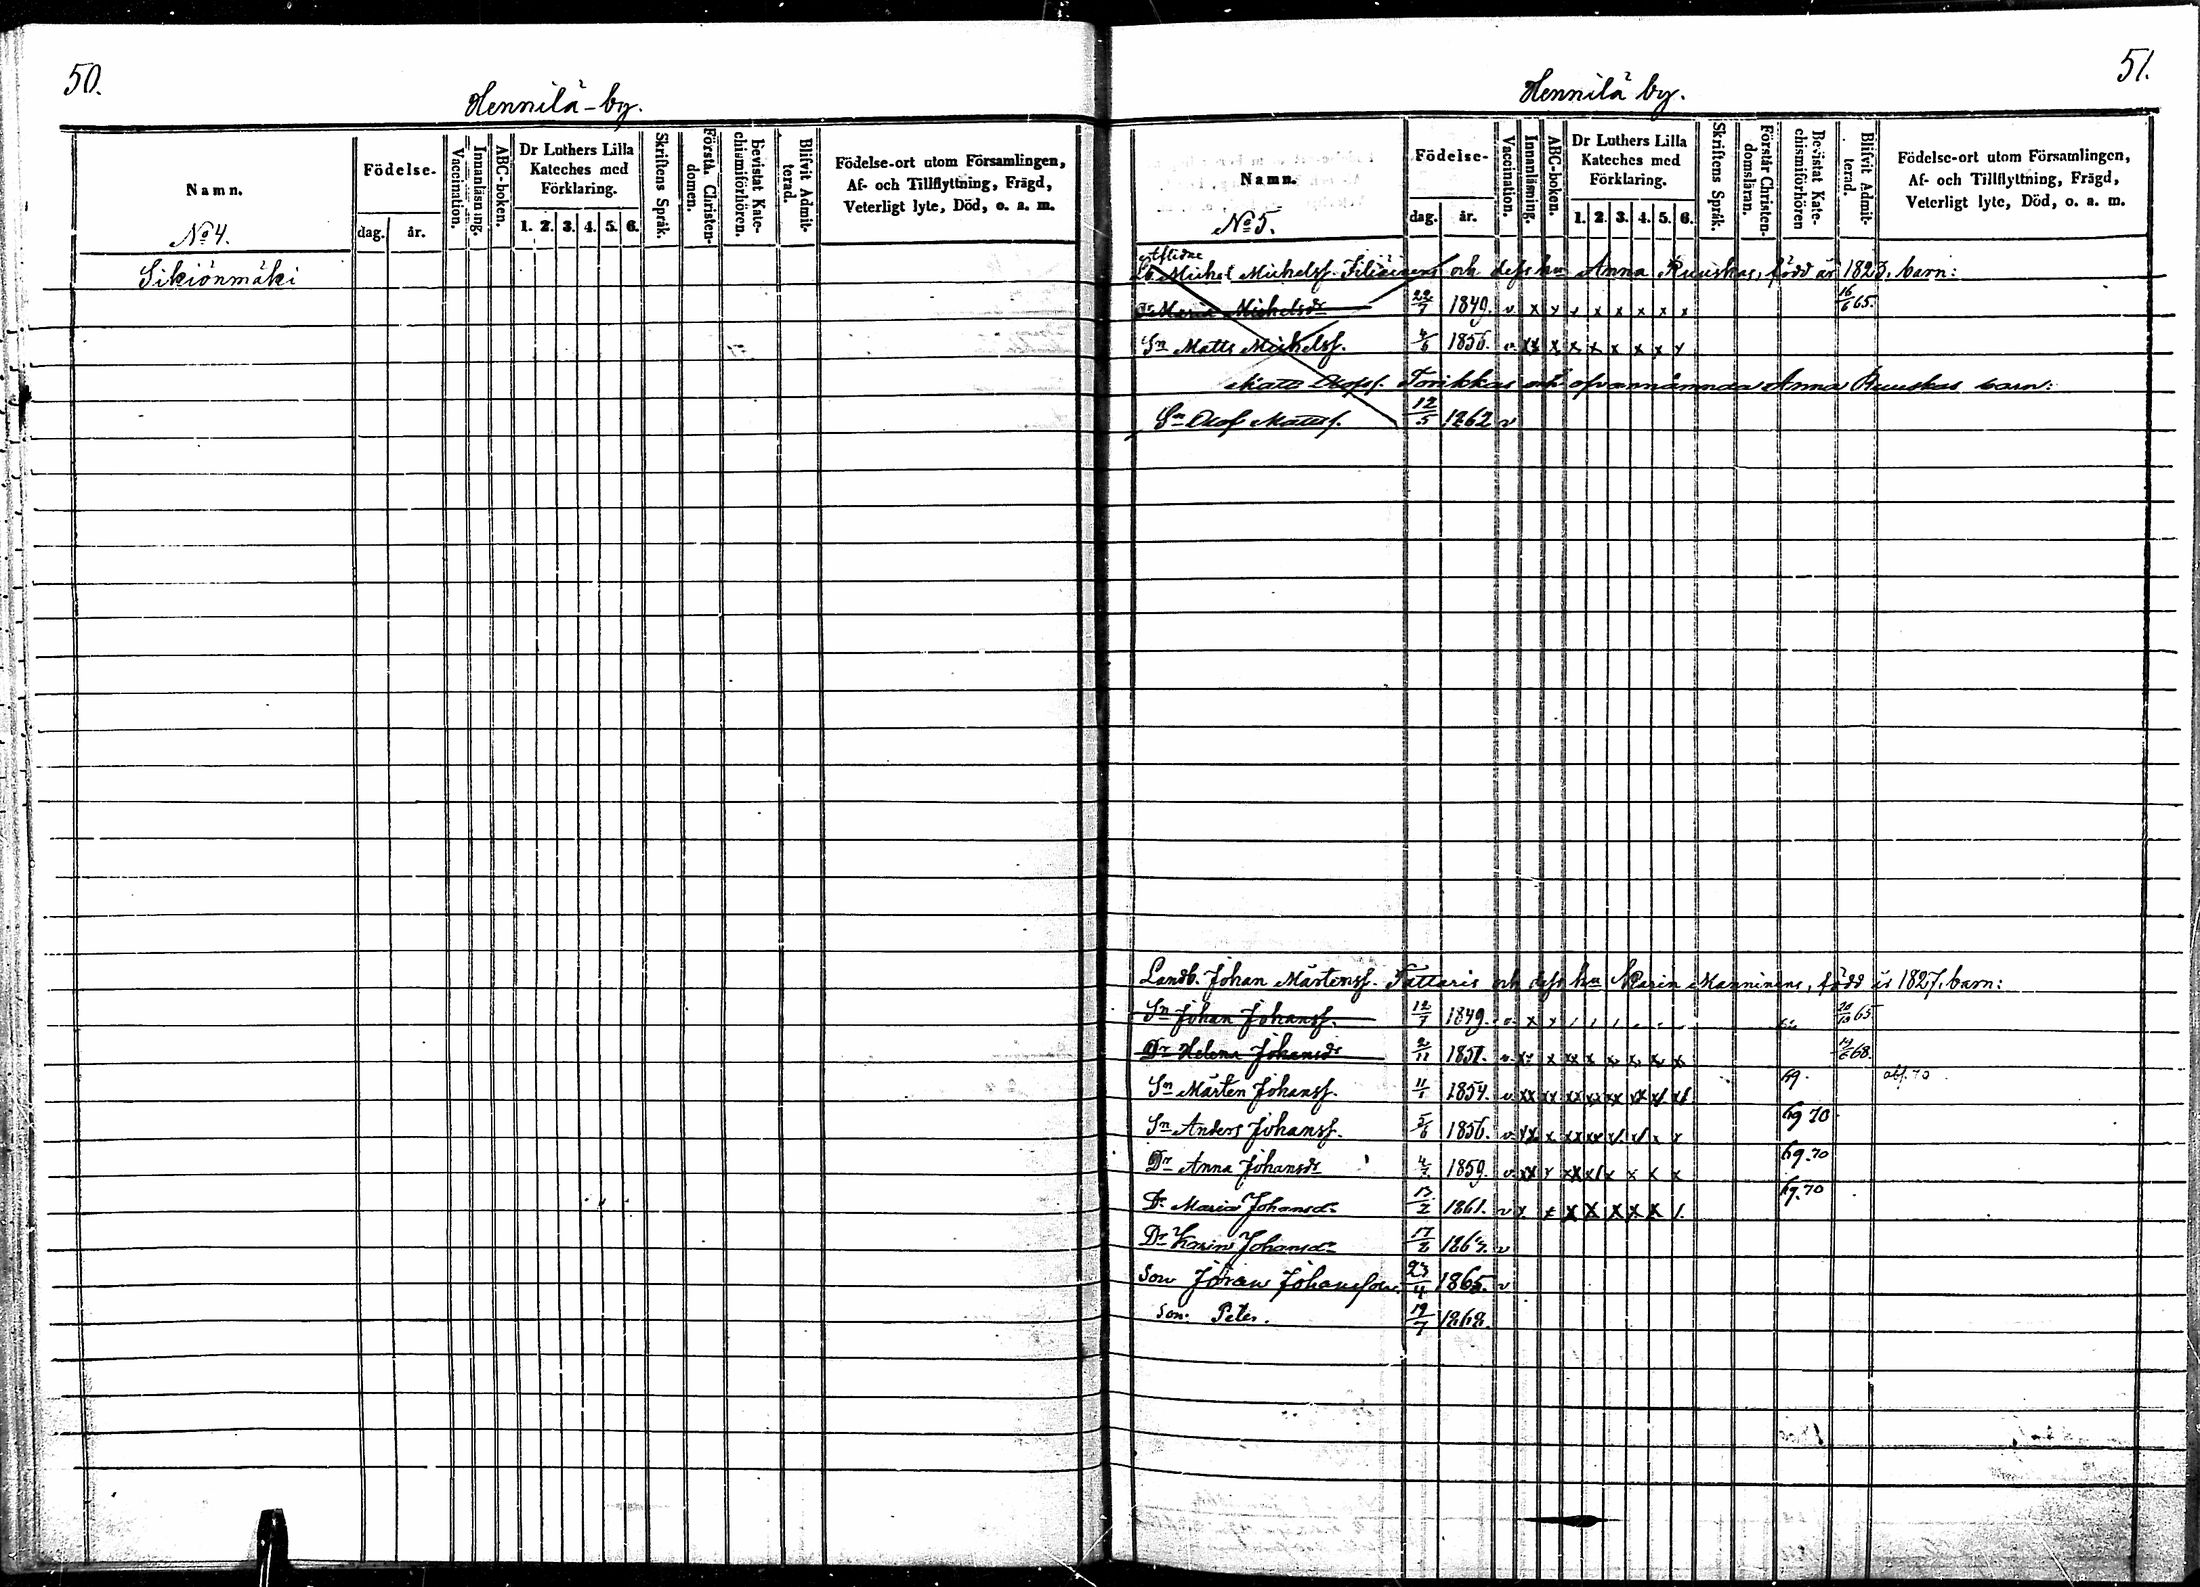 50.
Hennilä-by.
Namn.
No 4.
Födelse-
dag.
år.
Vaccination.
Innanläsning.
ABC-boken.
Dr Luthers Lilla
Kateches med
Förklaring.
1. 2. 3. 4. 5. 6.
Skriftens Språk.
Förstå. Christen-
domen.
bevistat Kate-
chismiförhören.
Blifvit Admit-
terad.
Födelse-ort utom Församlingen,
Af- och Tillflyttning, Frägd,
Veterligt lyte, Död, o. a. m.
Sikiönmäki
51.
Hennilä by.
Namn.
No 5.
Födelse-
dag.
år.
Vaccination.
Innanläsning.
ABC-boken.
Dr Luthers Lilla
Kateches med
Förklaring.
1. 2. 3. 4. 5. 6.
Skriftens Språk.
Förstår Christen-
domsläran.
Bevistat Kate-
chismiförhören
Blifvit Admit-
terad.
Födelse-ort utom Församlingen,
Af- och Tillflyttning, Frägd,
Veterligt lyte, Död, o. a. m.
Aflidne
Michel Michelss. och dess hu Anna Ruuskas, född år 1823, barn:
Dr Maria Michelsdr 22/7 1849. v x x x x x x x x 16/6 65.
Sn Matts Michelss. 4/6 1856. v xx x x x x x x x
Matts Olofss. Torikkas och ofvannämnda Anna Ruuskas barn:
Sn Olof Mattss. 12/5 1862 v
Landb. Johan Mårtenss. Tattaris och dess hu Karin Manninens, född år 1827, barn:
Sn Johan Johanss. 12/7 1849. v x x 65
Dr Helena Johansdr 2/11 1851. 68.
Sn Mårten Johanss. 11/1 1854. v xx xx 69. abs. 70
Sn Anders Johanss. 5/6 1856. v 69 70
Dr Anna Johansdr 1859. v xx x 69.70
Dr Maria Johansdr 13/2 1861. v x. x x x x x x /. 69.70
Dr Karin Johansdr v
Son Jöran Johansson. 23/4 1865. v
Son. Peter. 19/7 1868.